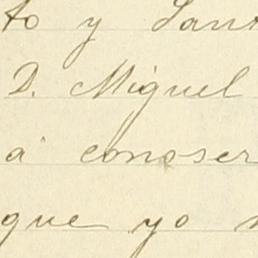 to y Sant
D. Miguel
á conoser
que yo